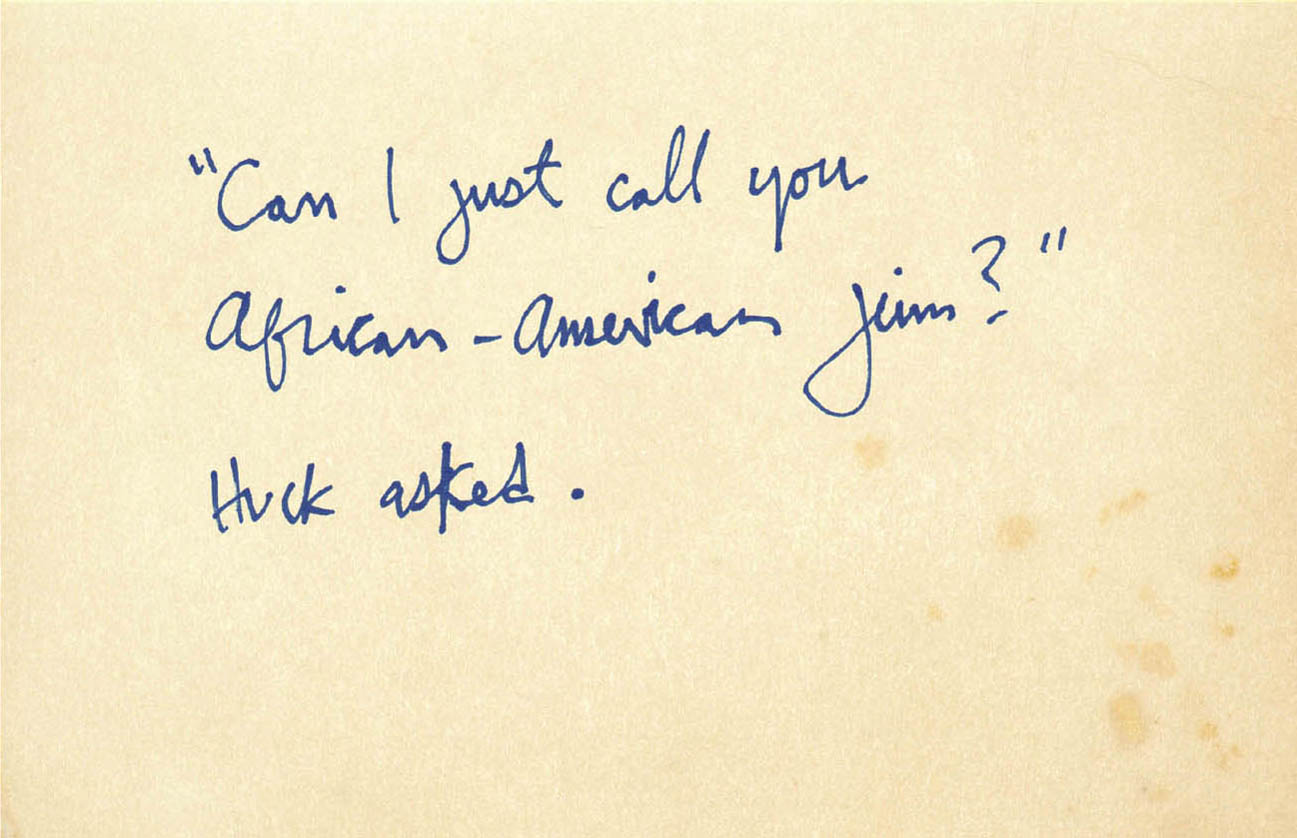 "Can I just call you
African-American Jim?"
Huck asked.